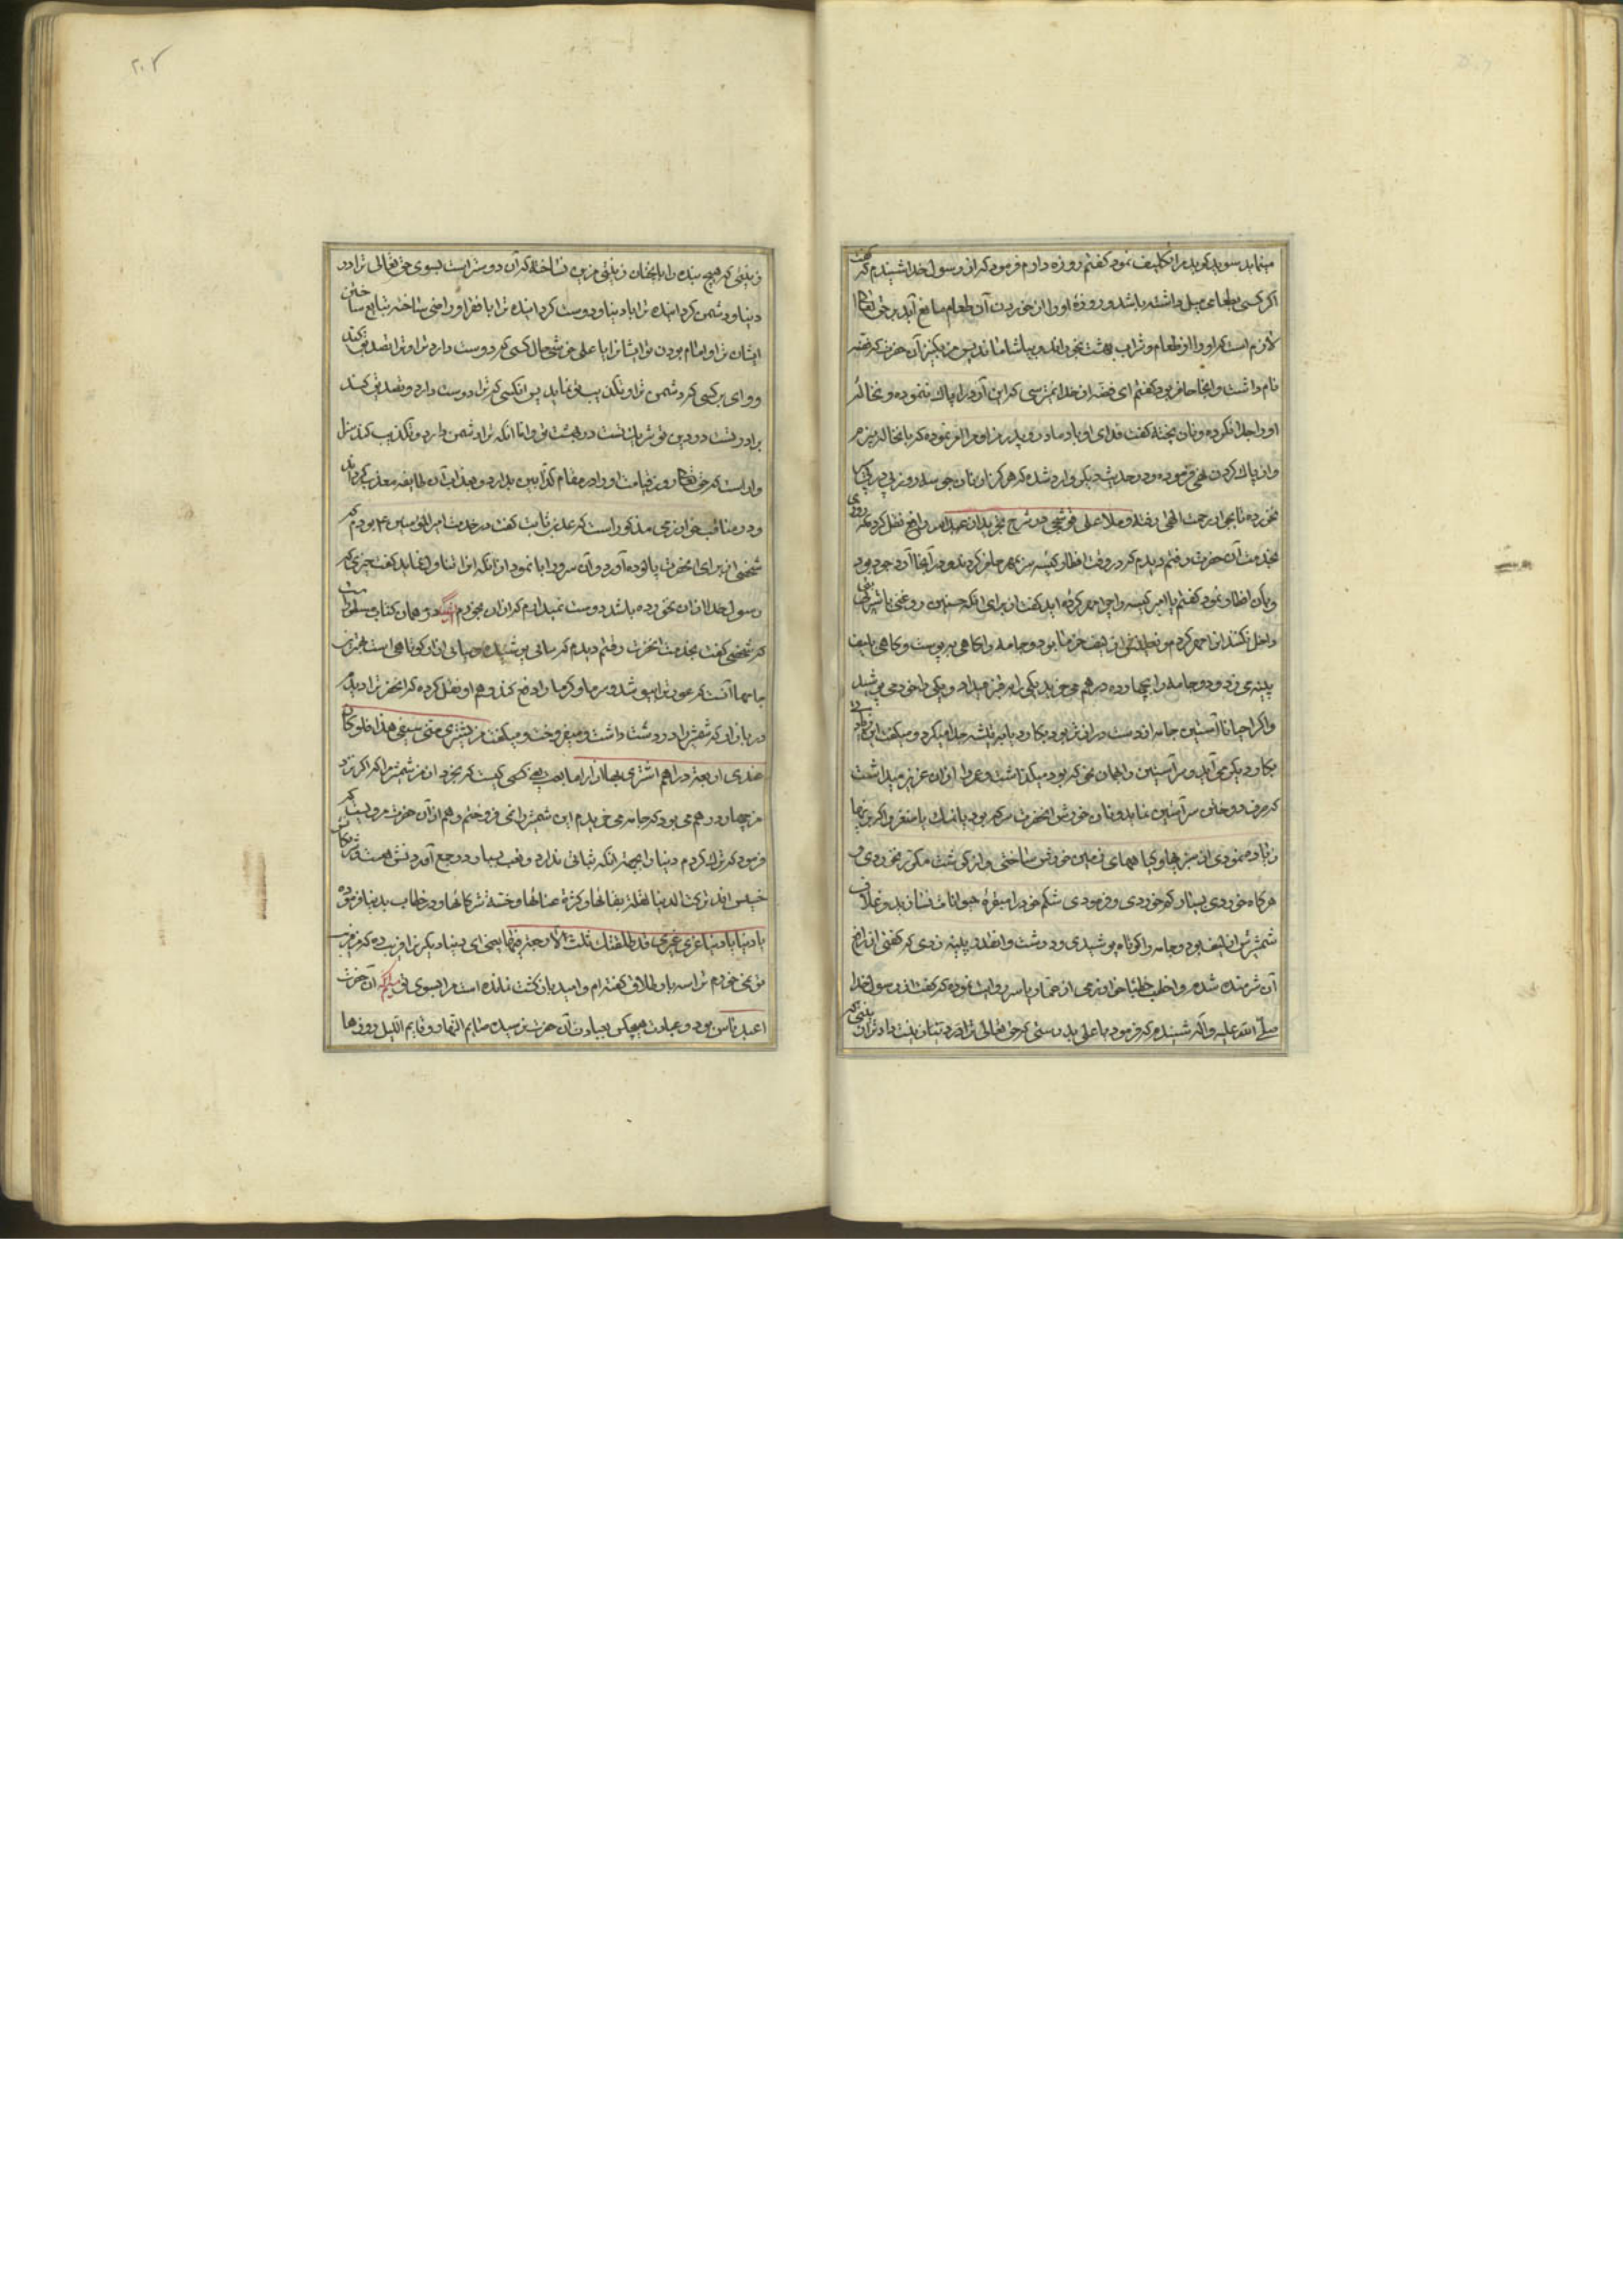 میباید سوید کوید مرا تکلیف نمود کفتم روزه دارم فرمود که از رسول خدا شنیدم که گفت
اکر کسی بطعامی میل داشته باشد و روزهٔ او را از خوردن آن طعام مانع آید بر حق تعالی
لازم است که او را از طعام و شراب بهشت بخوراند و بیاشاماند پس من بکنیز آن حضرت که فضه
نام داشت و آنجا حاضر بود کفتم ای فضه از خدا نمیترسی که این آرد را پاک ننموده و نخاله
او را جدا نکرده و نان پخته کفت فدای او باد مادر و پدرم او مرا امر نموده که با نخاله بپزم
و از پاک کردن نهی فرموده و در حدیث دیکر وارد شده که هرکز از نان جو سه روز پی در پی
نخورده تا بجوار رحمت الهی رفته و ملا علی قوشچی در شرح تجرید از عبدالله رافع نقل کرده که روزی
بخدمت آن حضرت رفتم دیدم که در وقت افطار کیسه سر بمهر حاضر کردند و در آنجا آرد جو بود
و بآن افطار نمود کفتم یا امیر کیسه را چرا مهر کرده اید کفت از برای آنکه حسنین روغنی یا شیرینی
داخل نکنند از احمر کردم و نعلینش از لیف خرما بود و جامه را کاهی به پوست و کاهی بلیف
پینه می زد و دو جامه را بچهارده درهم می خرید یکی را بقنبر میداد و یکی را خود می پوشید
و اکر احیانا آستین جامه از دست درازتر بود بکارد یا به تیشه جدا میکرد و میکفت این زیاد
بکار دیکر می آید و سر آستین را همان نحو که بود میکذاشت و عمر را از آن عزیزتر میداشت
که صرف دوختن سر آستین نماید و نان خورش آنحضرت سرکه بود یا نمک یا صعتر و اکر برینها
زیاده نمودی از سبزیها و کیاههای زمین خورش ساختی و از کوشت مکرر نخوردی و
هرکاه خوردی بسیار کم خوردی و فرمودی شکم خود را مقبرهٔ حیوانات نسازید و غلاف
شمشیرش از لیف بود و جامه را کوتاه پوشیدی و درشت و آنقدر پینه زدی که کفتی از راقع
آن شرمنده شدم و اخطب خطبا خوارزمی از عمار یاسر روایت نموده که کفت از رسول خدا
صلی الله علیه و آله شنیدم که فرمود یا علی بدرستی که حق تعالی ترا در دنیا زینت داد ترا بزینتی که
زینتی که هیچ بنده را بآنچنان زینتی مزین نساخته که آن دوستر است بسوی حق تعالی ترا در
دنیا و دشمن کردانیده ترا با دنیا و دوست کردانیده ترا با فقرا و راضی ساخته بتابع ساختن
ایشان ترا و امام بودن تو ایشانرا یا علی خوشی حال کسی که دوست دارد ترا و ترا تصدیق کند
و وای بر کسی که دشمن ترا و تکذیب تو نماید پس آنکسی که ترا دوست دارد و تصدیق کند
برادر تست در دین تو شریک تست در بهشت تو و اما آنکه ترا دشمن دارد و تکذیب کند سزا
وار است که حق تعالی روز قیامت او را در مقام کذابین بدارد و بعذاب آن طایفه معذب کرداند
و در مناقب خوارزمی مذکور است که عدی بن ثابت کفت در خدمت امیرالمؤمنین ۴ بودم که
شخصی از برای آنحضرت پالوده آورد و آن سرور ابا نمود از آنکه از آن تناول نماید کفت چیزی که
رسول خدا از آن نخورده باشد دوست نمیدارم که از آن بخورم دیگر در همان کتاب مسطور است
که شخصی کفت بخدمت آنحضرت رفتم دیدم که لباسی پوشیده و میانی از آن کوتاهی است بهترین
جامها آنست که عورت را بپوشد و سرما و کرما را دفع کند و هم او نقل کرده که آنحضرت را دیدم
در بازار که شمشیر در دست داشت و میفروخت و میکفت من یشتری منی سیفی هذا فلو کان
عندی اربعة دراهم اشتری بها ازارا ما بعت یعنی کسی کیست که بخرد از من شمشیر مرا که اکر نزد
من چهار درهم می بود که جامه می خریدم این شمشیر را نمی فروختم و هم از آن حضرت مرویست که
فرمود که ترک کردم دنیا را بجهت آنکه ثباتی ندارد و تعب بسیار در جمع آمدنش هست و شرکاش
خسیس اند ترکت الدنیا لقلة بقائها و کثرة عنائها و خسة شرکائها و در خطاب بدنیا فرموده
یا دنیا یا دنیا غری غیری قد طلقتک ثلثا لا رجعة فیها یعنی ای دنیا دیکری را فریب ده که من فریب
تو نمی خورم ترا سه بار طلاق کفته ام و امید بازکشت نمانده است مرا بسوی تو دیگر آنکه آن حضرت
اعبد ناس بود و عبادت هیچکس بعبادت آن حضرت نرسیده صایم النهار و قایم اللیل روزها